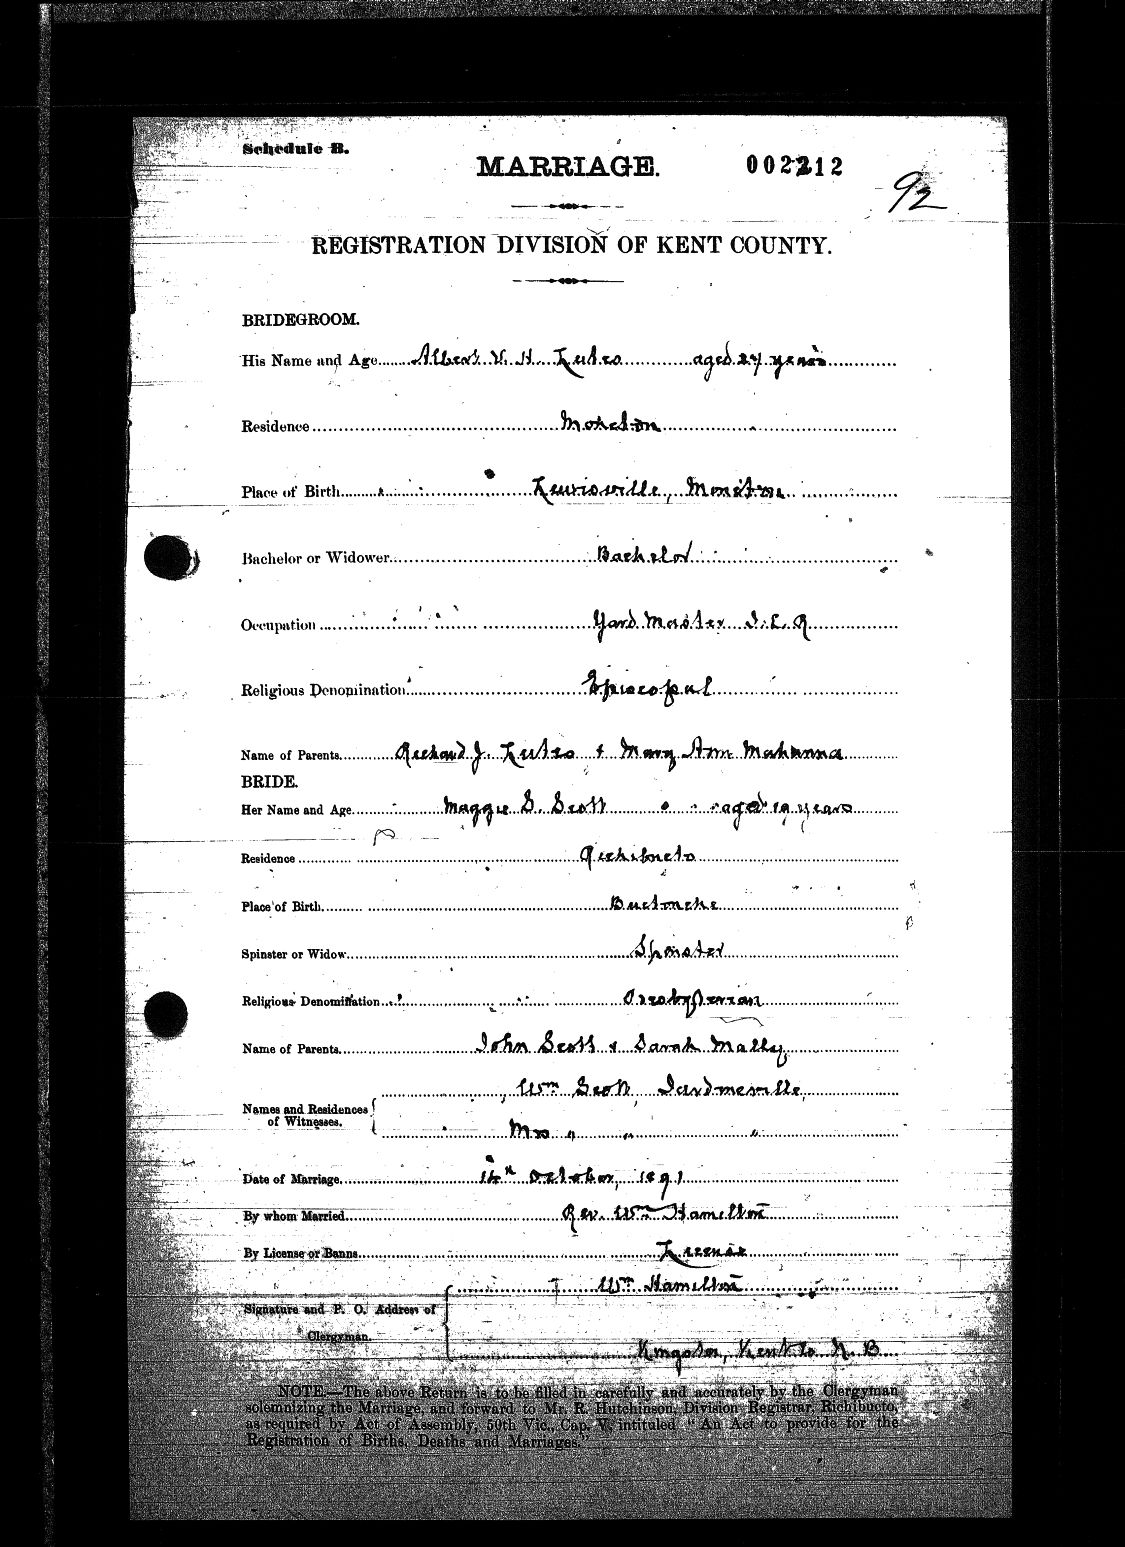 Schedule B.
MARRIAGE. 002212
92
REGISTRATION DIVISION OF KENT COUNTY.
BRIDEGROOM.
His Name and Age Albert V. H. Lutes aged 27 years
Residence Moncton
Place of Birth Lewisville, Moncton
Bachelor or Widower Bachelor
Occupation Yard Master I. C. R
Religious Denomination Episcopal
Name of Parents Richard J. Lutes & Mary Ann Mahanna
BRIDE.
Her Name and Age Maggie S. Scott aged 19 years
Residence Richibucto
Place of Birth Buctouche
Spinster or Widow Spinster
Religious Denomination Presbyterian
Name of Parents John Scott & Sarah Mally
Wm Scott Jardineville,
Names and Residences
of Witnesses.
Mrs " " "
Date of Marriage 14th October, 1891
By whom Married Rev. Wm Hamilton
By License or Banns License
Wm Hamilton
Signature and P. O. Address of
Clergyman.
Kingston, Kent Co N. B.
NOTE.—The above Return is to be filled in carefully and accurately by the Clergyman
solemnizing the Marriage, and forward to Mr. R. Hutchinson, Division Registrar, Richibucto,
as required by Act of Assembly, 50th Vic., Cap. V. intituled "An Act to provide for the
Registration of Births, Deaths and Marriages."